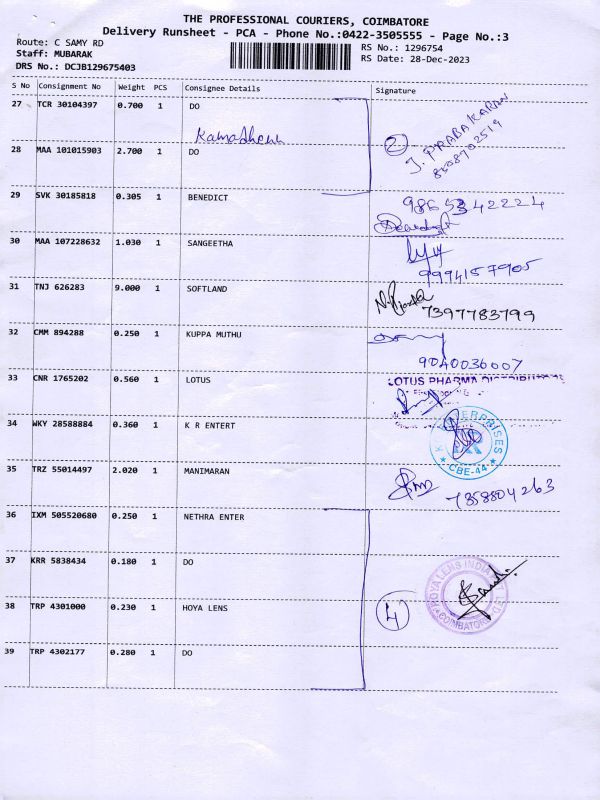 THE PROFESSIONAL COURIERS, COIMBATORE
Delivery Runsheet - PCA - Phone No.:0422-3505555 - Page No.:3
Route: C SAMY RD
Staff: MUBARAK
DRS No.: DCJB129675403
RS No.: 1296754
RS Date: 28-Dec-2023
S No Consignment No Weight PCS Consignee Details Signature
27 TCR 30104397 0.700 1 DO
Kamadhenu
2 J. PRABAKARAN
8608702519
28 MAA 101015903 2.700 1 DO
29 SVK 30185818 0.305 1 BENEDICT 9865342224
30 MAA 107228632 1.030 1 SANGEETHA
9994157905
31 TNJ 626283 9.000 1 SOFTLAND 7397783799
32 CMM 894288 0.250 1 KUPPA MUTHU
9040036007
33 CNR 1765202 0.560 1 LOTUS LOTUS PHARMA DISTRIBUTORS
34 WKY 28588884 0.360 1 K R ENTERT K R ENTERPRISES
KR
★ CBE-44 ★
35 TRZ 55014497 2.020 1 MANIMARAN 7358804263
36 IXM 505520680 0.250 1 NETHRA ENTER
37 KRR 5838434 0.180 1 DO
38 TRP 4301000 0.230 1 HOYA LENS 4 HOYA LENS INDIA PVT LTD
COIMBATORE
39 TRP 4302177 0.280 1 DO